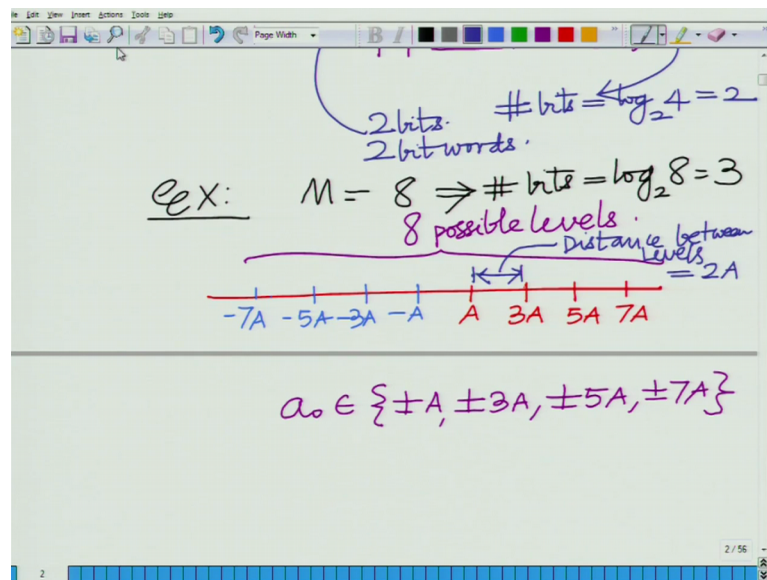 File Edit View Insert Actions Tools Help
Page Width
B I
# bits = log₂4 = 2
2 bits.
2 bit words.
ex: M = 8 ⇒ # bits = log₂8 = 3
8 possible levels.
Distance between
levels
= 2A
-7A -5A -3A -A A 3A 5A 7A
a₀ ∈ {±A, ±3A, ±5A, ±7A}
2 / 56
2